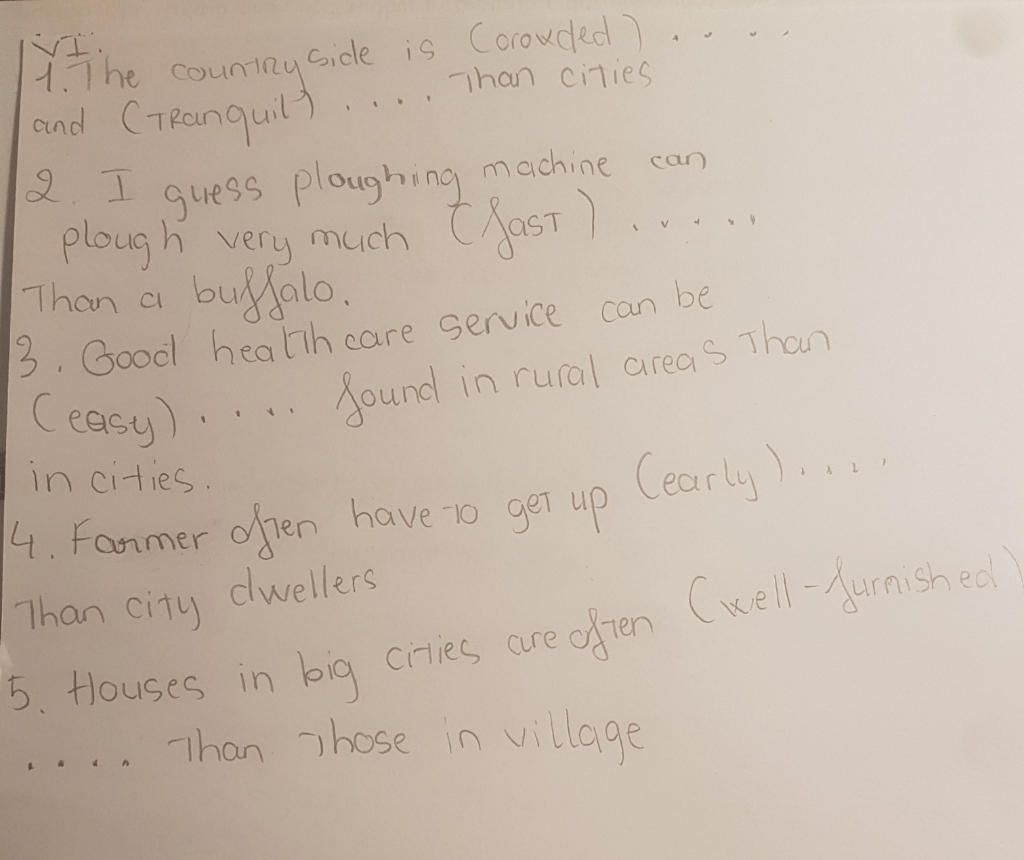 VI.
1. The countryside is (crowded) .....
and (Tranquil) .... Than cities
2. I guess ploughing machine can
plough very much (fast) .....
Than a buffalo.
3. Good health care service can be
(easy) ..... found in rural areas Than
in cities.
4. Farmer often have to get up (early) ....
Than city dwellers
5. Houses in big cities are often (well-furnished)
.... Than Those in village